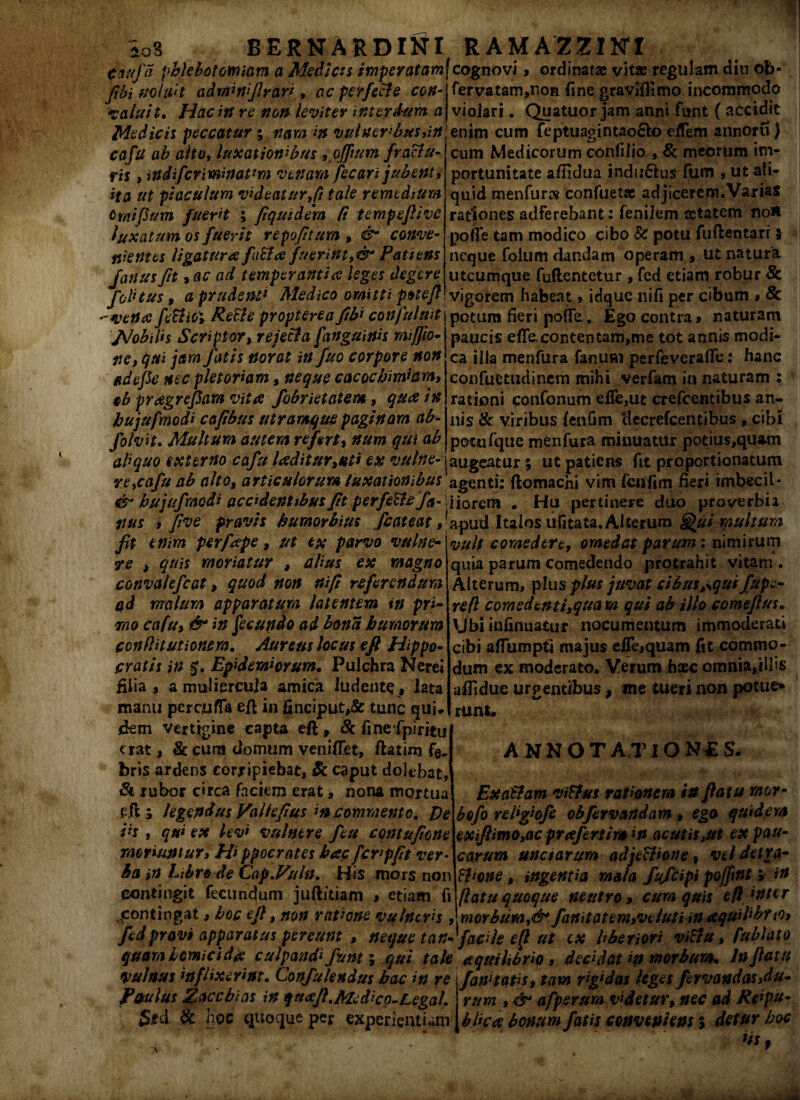 208 BERNARDINI RAMAZZINI
causa phlebotomiam a Medicis imperatam
sibi voluit administrari, ac perfecte con-
valuit. Hac in re non leviter interdum a
Medicis peccatur; nam in vulneribus, in
casu ab alto, luxationibus, ossium fractu-
ris, indiscriminatim venam secari jubent,
ita ut piaculum videatur, si tale remedium
omissum fuerit; siquidem si tempestive
luxatum os fuerit repositum, & conve-
nientes ligaturæ factæ fuerint, & Patiens
sanus sit, ac ad temperantiæ leges degere
solitus, a prudenti Medico omitti potest
venæ sectio; Recte propterea sibi consuluit
Nobilis Scriptor, rejecta sanguinis missio-
ne, qui jam satis norat in suo corpore non
adesse nec pletoriam, neque cacochimiam,
ob prægressam vitæ sobrietatem, qua in
hujusmodi casibus utramque paginam ab-
solvit. Multum autem refert, num qui ab
aliquo externo casu læditur, uti ex vulne-
re, casu ab alto, articulorum luxationibus
& hujusmodi accidentibus sit perfecte sa-
nus, sive pravis humorbius scateat,
fit enim persæpe, ut ex parvo vulne-
re, quis moriatur, alius ex magno
convalescat, quod non nisi referendum
ad malum apparatum latentem in pri-
mo casu, & in secundo ad bona humorum
constitutionem. Aureus locus est Hippo-
cratis in 5. Epidemiorum. Pulchra Nerei
filia, a muliercula amica ludente, lata
manu percussa est in sinciput, & tunc qui-
dem vertigine capta est, & sine spiritu
erat, & cum domum venisset, statim fe-
bris ardens corripiebat, & caput dolebat,
& rubor circa faciem erat, nona mortua
est; legendus Vallesius in commento. De
iis, qui ex levi vulnere seu contusione
moriuntur, Hippocrates hæc scripsit ver-
ba in Libro de Cap. Vuln. His mors non
contingit secundum justitiam, etiam si
contingat, hoc est, non ratione vulneris,
sed pravi apparatus pereunt, neque tan-
quam homicidæ culpandi sunt; qui tale
vulnus inflixerint. Consulendus hac in re
Paulus Zacchias in quæst. Medico-Legal.
Sed & hoc quoque per experientiam
cognovi, ordinatæ vitæ regulam diu ob-
servatam, non sine gravissimo incommodo
violari. Quatuor jam anni sunt (accidit
enim cum septuagintaocto essem annorũ)
cum Medicorum consilio, & meorum im-
portunitate assidua inductus sum, ut ali-
quid mensuræ consuetæ adjicerem. Varias
rationes adferebant: senilem ætatem non
posse tam modico cibo & potu sustentari;
neque solum dandam operam, ut natura
utcumque sustentetur, sed etiam robur &
vigorem habeat, idque nisi per cibum, &
potum fieri posse. Ego contra, naturam
paucis esse contentam, me tot annis modi-
ca illa mensura sanum perseverasse: hanc
consuetudinem mihi versam in naturam:
rationi consonum esse, ut crescentibus an-
nis & viribus sensim decrescentibus, cibi
potusque mensura minuatur potius, quam
augeatur; ut patiens sit proportionatum
agenti: stomachi vim sensim fieri imbecil-
liorem. Hu pertinere duo proverbia
apud Italos usitata. Alterum Qui multum
vult comedere, omedat parum: nimirum
quia parum comedendo protrahit vitam.
Alterum, plus plus juvat cibus, qui supe-
rest comedenti, quam qui ab illo comestus.
Ubi insinuatur nocumentum immoderati
cibi assumpti majus esse, quam sit commo-
dum ex moderato. Verum hæc omnia, illis
assidue urgentibus, me tueri non potue-
runt.
ANNOTATIONES.
Exactam victus rationem in statu mor-
boso religiose observandam, ego quidem
existimo, ac præsertim in acutis, ut ex pau-
carum unciarum adjectione, vel detra-
ctione, ingentia mala suscipi possint; in
statu quoque neutro, cum quis est inter
morbum, & sanitatem, veluti in æquilibrio,
facile est ut ex liberiori victu, sublato
æquilibrio, decidat in morbum. In statu
sanitatis, tam rigidas leges servandas, du-
rum, & asperum videtur, nec ad Reipu-
blicæ bonum satis conveniens; detur hoc
iis,